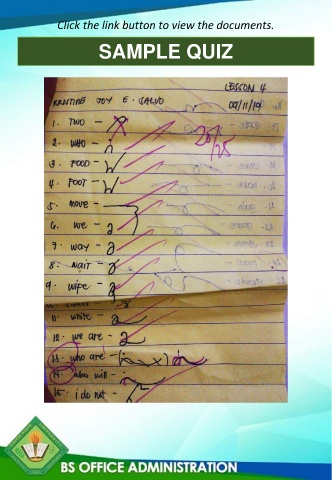 Click the link button to view the documents.
SAMPLE QUIZ
LESSON 4
KRISTINE JOY E. SALVO 09/11/19
1. TWO -
25/25
2. WHO -
3. FOOD -
4. FOOT -
5. move -
6. we -
7. way -
8. wait -
9. wipe -
11. white -
12. we are -
13. who are -
14. who will -
15. i do not -
BS OFFICE ADMINISTRATION